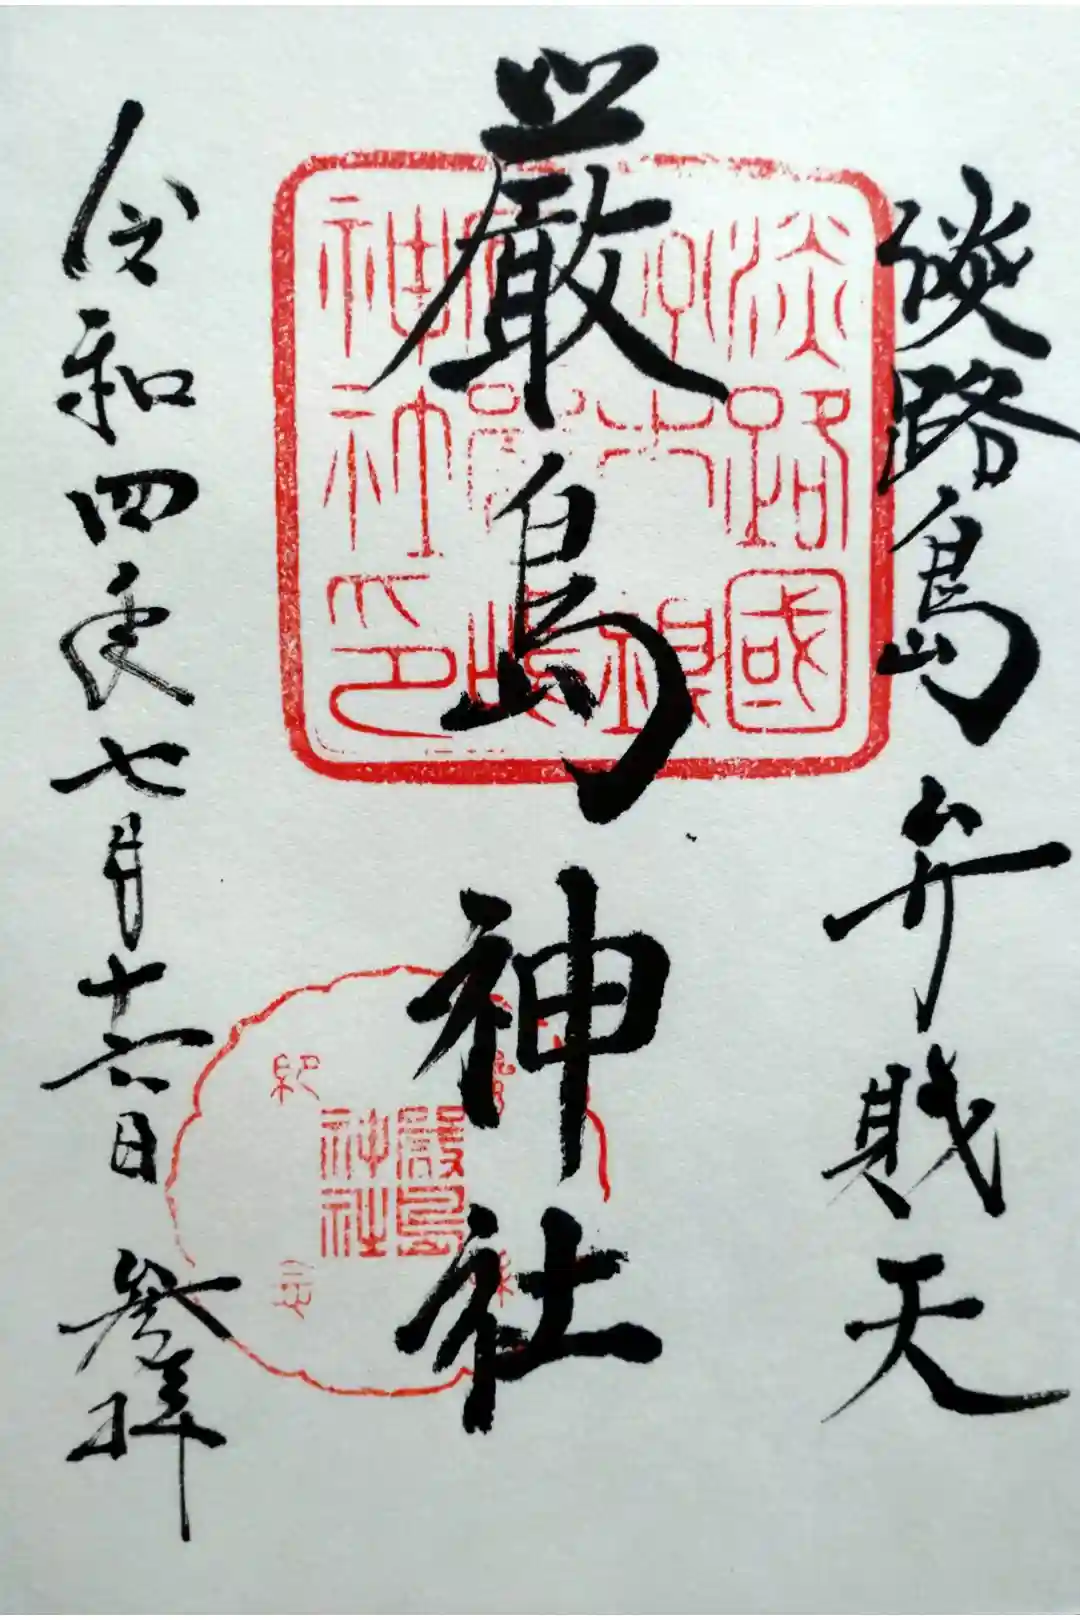 淡路島弁財天
厳島神社
令和四年七月十六日 参拝
淡路國
神社印
嚴島
神社
紀念